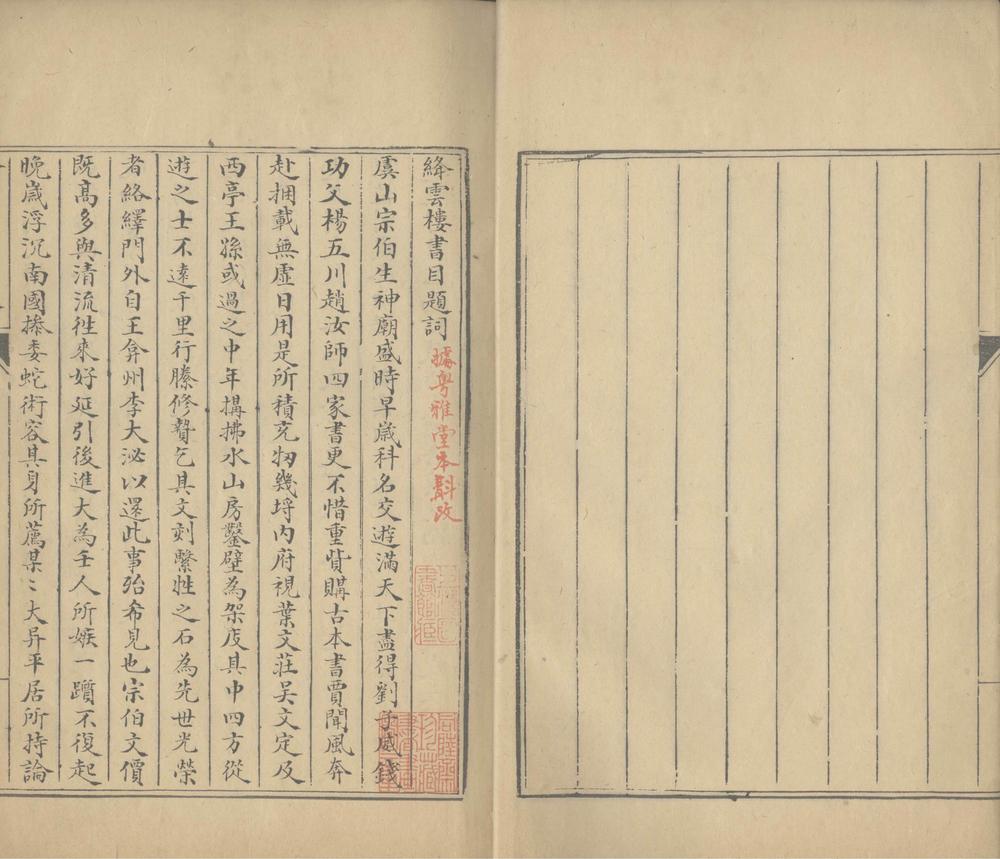 絳雲樓書目題詞 據粵雅堂本斠改
虞山宗伯生神廟盛時早歲科名交遊滿天下盡得劉子威錢
功父楊五川趙汝師四家書更不惜重貲購古本書賈聞風奔
赴捆載無虛日用是所積充牣幾埒內府視葉文莊吳文定及
西亭王孫或過之中年搆拂水山房鑿壁為架庋其中四方從
遊之士不遠千里行縢修贄乞其文刻繫牲之石為先世光榮
者絡繹門外自王弇州李大泌以還此事殆希見也宗伯文價
既高多與清流徃來好延引後進大為壬人所嫉一躓不復起
晚歲浮沉南國操委蛇術容其身所薦某〻大异平居所持論